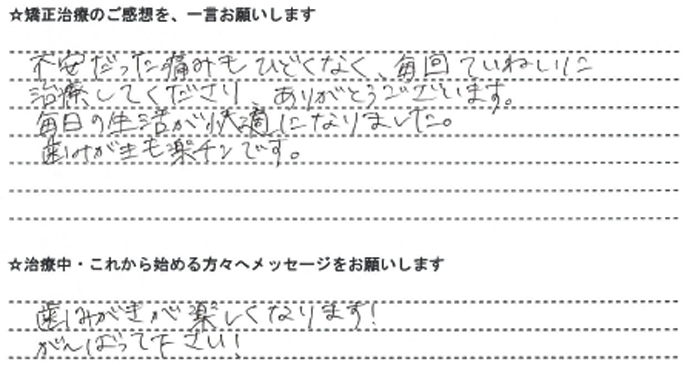 ☆矯正治療のご感想を、一言お願いします
不安だった痛みもひどくなく、毎回ていねいに
治療してくださり、ありがとうございます。
毎日の生活が快適になりました。
歯みがきも楽チンです。
☆治療中・これから始める方々へメッセージをお願いします
歯みがきが楽しくなります!
がんばって下さい!